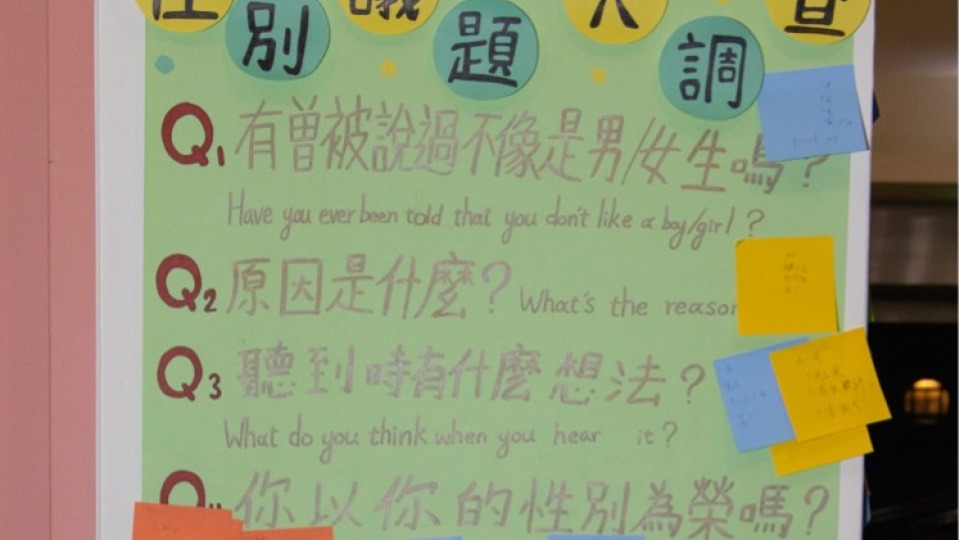 性別議題大調查
Q1 有曾被說過不像是男/女生嗎?
Have you ever been told that you don't like a boy/girl?
Q2 原因是什麼? What's the reason
Q3 聽到時有什麼想法?
What do you think when you hear it?
Q4 你以你的性別為榮嗎?